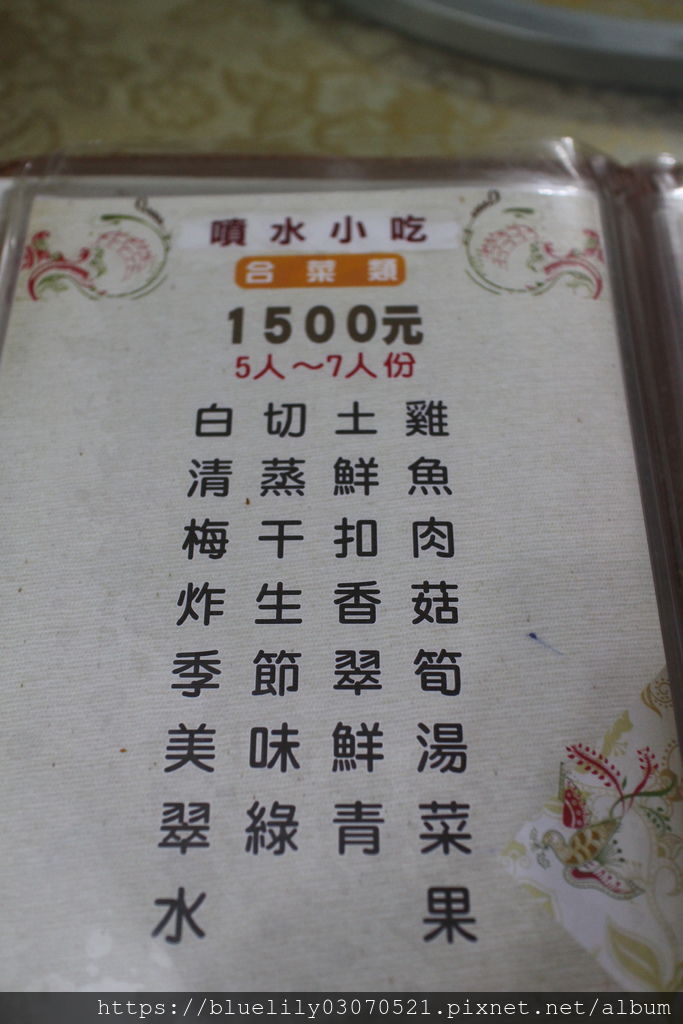 噴水小吃
合菜類
1500元
5人～7人份
白切土雞
清蒸鮮魚
梅干扣肉
炸生香菇
季節翠筍
美味鮮湯
翠綠青菜
水果
https://bluelily03070521.pixnet.net/album